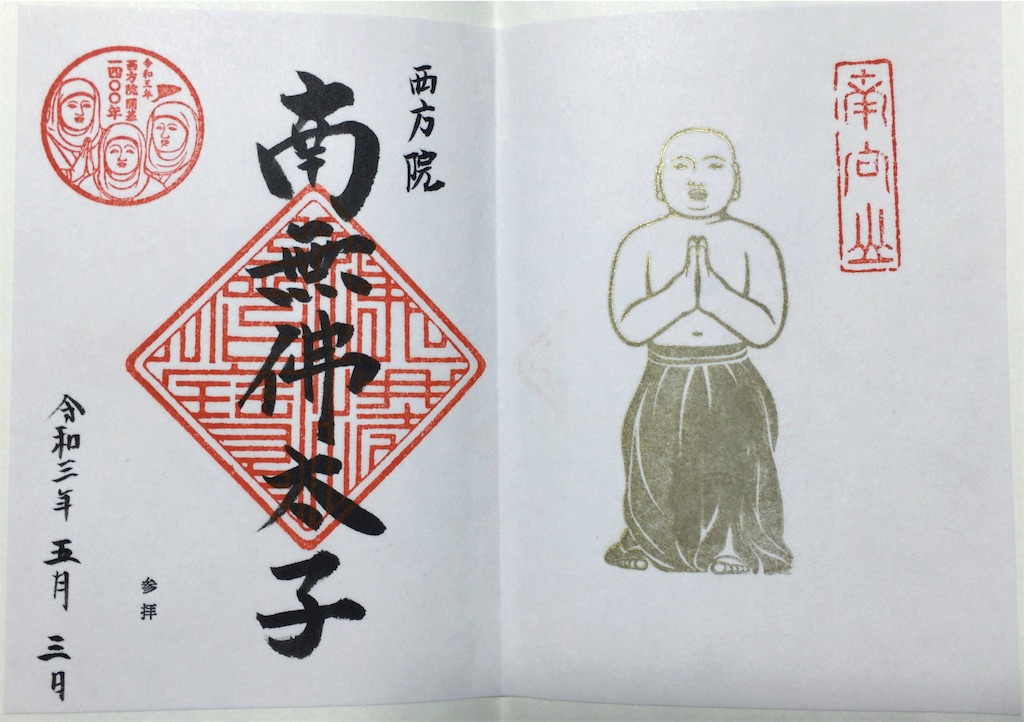 南向山
西方院
南無佛太子
参拝
令和三年 五月 三日
令和三年
西方院 開基
一四〇〇年